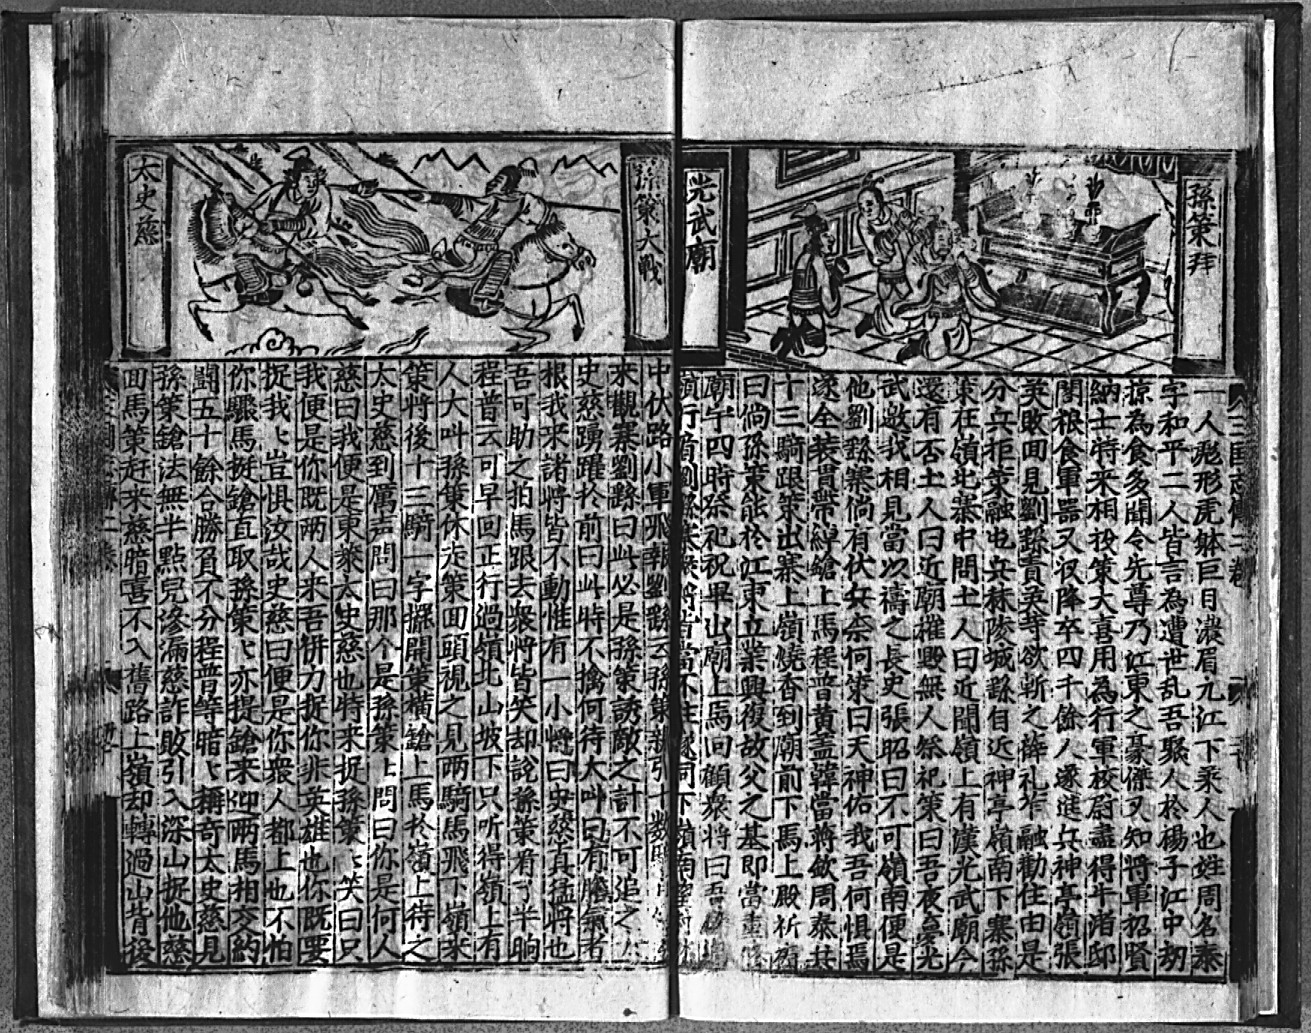 孫策拜
光武廟
一人彪形虎躰巨目濃眉九江下蔡人也姓周名泰
字和平二人皆言為遭世乱吾聚人於揚子江中劫
掠為食多聞令先尊乃江東之豪傑又知將軍招賢
納士特来相投策大喜用為行軍校尉盡得牛渚邸
閣粮食軍器又収降卒四千餘人遂進兵神亭嶺張
英敗回見劉繇責英等欲斬之薛礼笮融勸住由是
分兵拒策融屯兵秣陵城繇自近神亭嶺南下寨孫
策在嶺北寨中問土人曰近聞嶺上有漢光武廟今
還有否土人曰近廟摧毀無人祭祀策曰吾夜夢光
武邀我相見當以禱之長史張昭曰不可嶺南便是
他劉繇寨倘有伏兵奈何策曰天神佑我吾何惧焉
遂全装貫帶綽鎗上馬程普黄蓋韓當蒋欽周泰共
十三騎跟策出寨上嶺燒香到廟前下馬上殿祈禱
曰倘孫策能於江東立業興復故父之基即當重修
廟宇四時祭祀祝畢出廟上馬回顧衆将曰吾
嶺
孫策大戰
太史慈
中伏路小軍飛報劉繇云孫策親引十数騎
来觀寨劉繇曰此必是孫策誘敵之計不可追之太
史慈踴躍於前曰此特不擒何待大叫曰有膽氣者
根我来諸將皆不動惟有一小將曰史慈真猛將也
吾可助之拍馬跟去衆將皆笑却説孫策看了半晌
程普云可早回正行過嶺北山坡下只听得嶺上有
人大叫孫策休走策回頭視之見两騎馬飛下嶺来
策將後十三騎一字擺開策橫鎗上馬於嶺上待之
太史慈到厲声問曰那个是孫策〻問曰你是何人
慈曰我便是東萊太史慈也特来捉孫策〻笑曰只
我便是你既两人来吾併力捉你非英雄也你既要
捉我〻豈惧汝哉史慈曰便是你衆人都上也不怕
你驟馬挺鎗直取孫策〻亦提鎗来迎两馬相交約
鬪五十餘合勝負不分程普等暗〻稱奇太史慈見
孫策鎗法無半點兒滲漏慈詐敗引入深山捉他慈
回馬策赶来慈暗喜不入舊路上嶺却轉過山背後